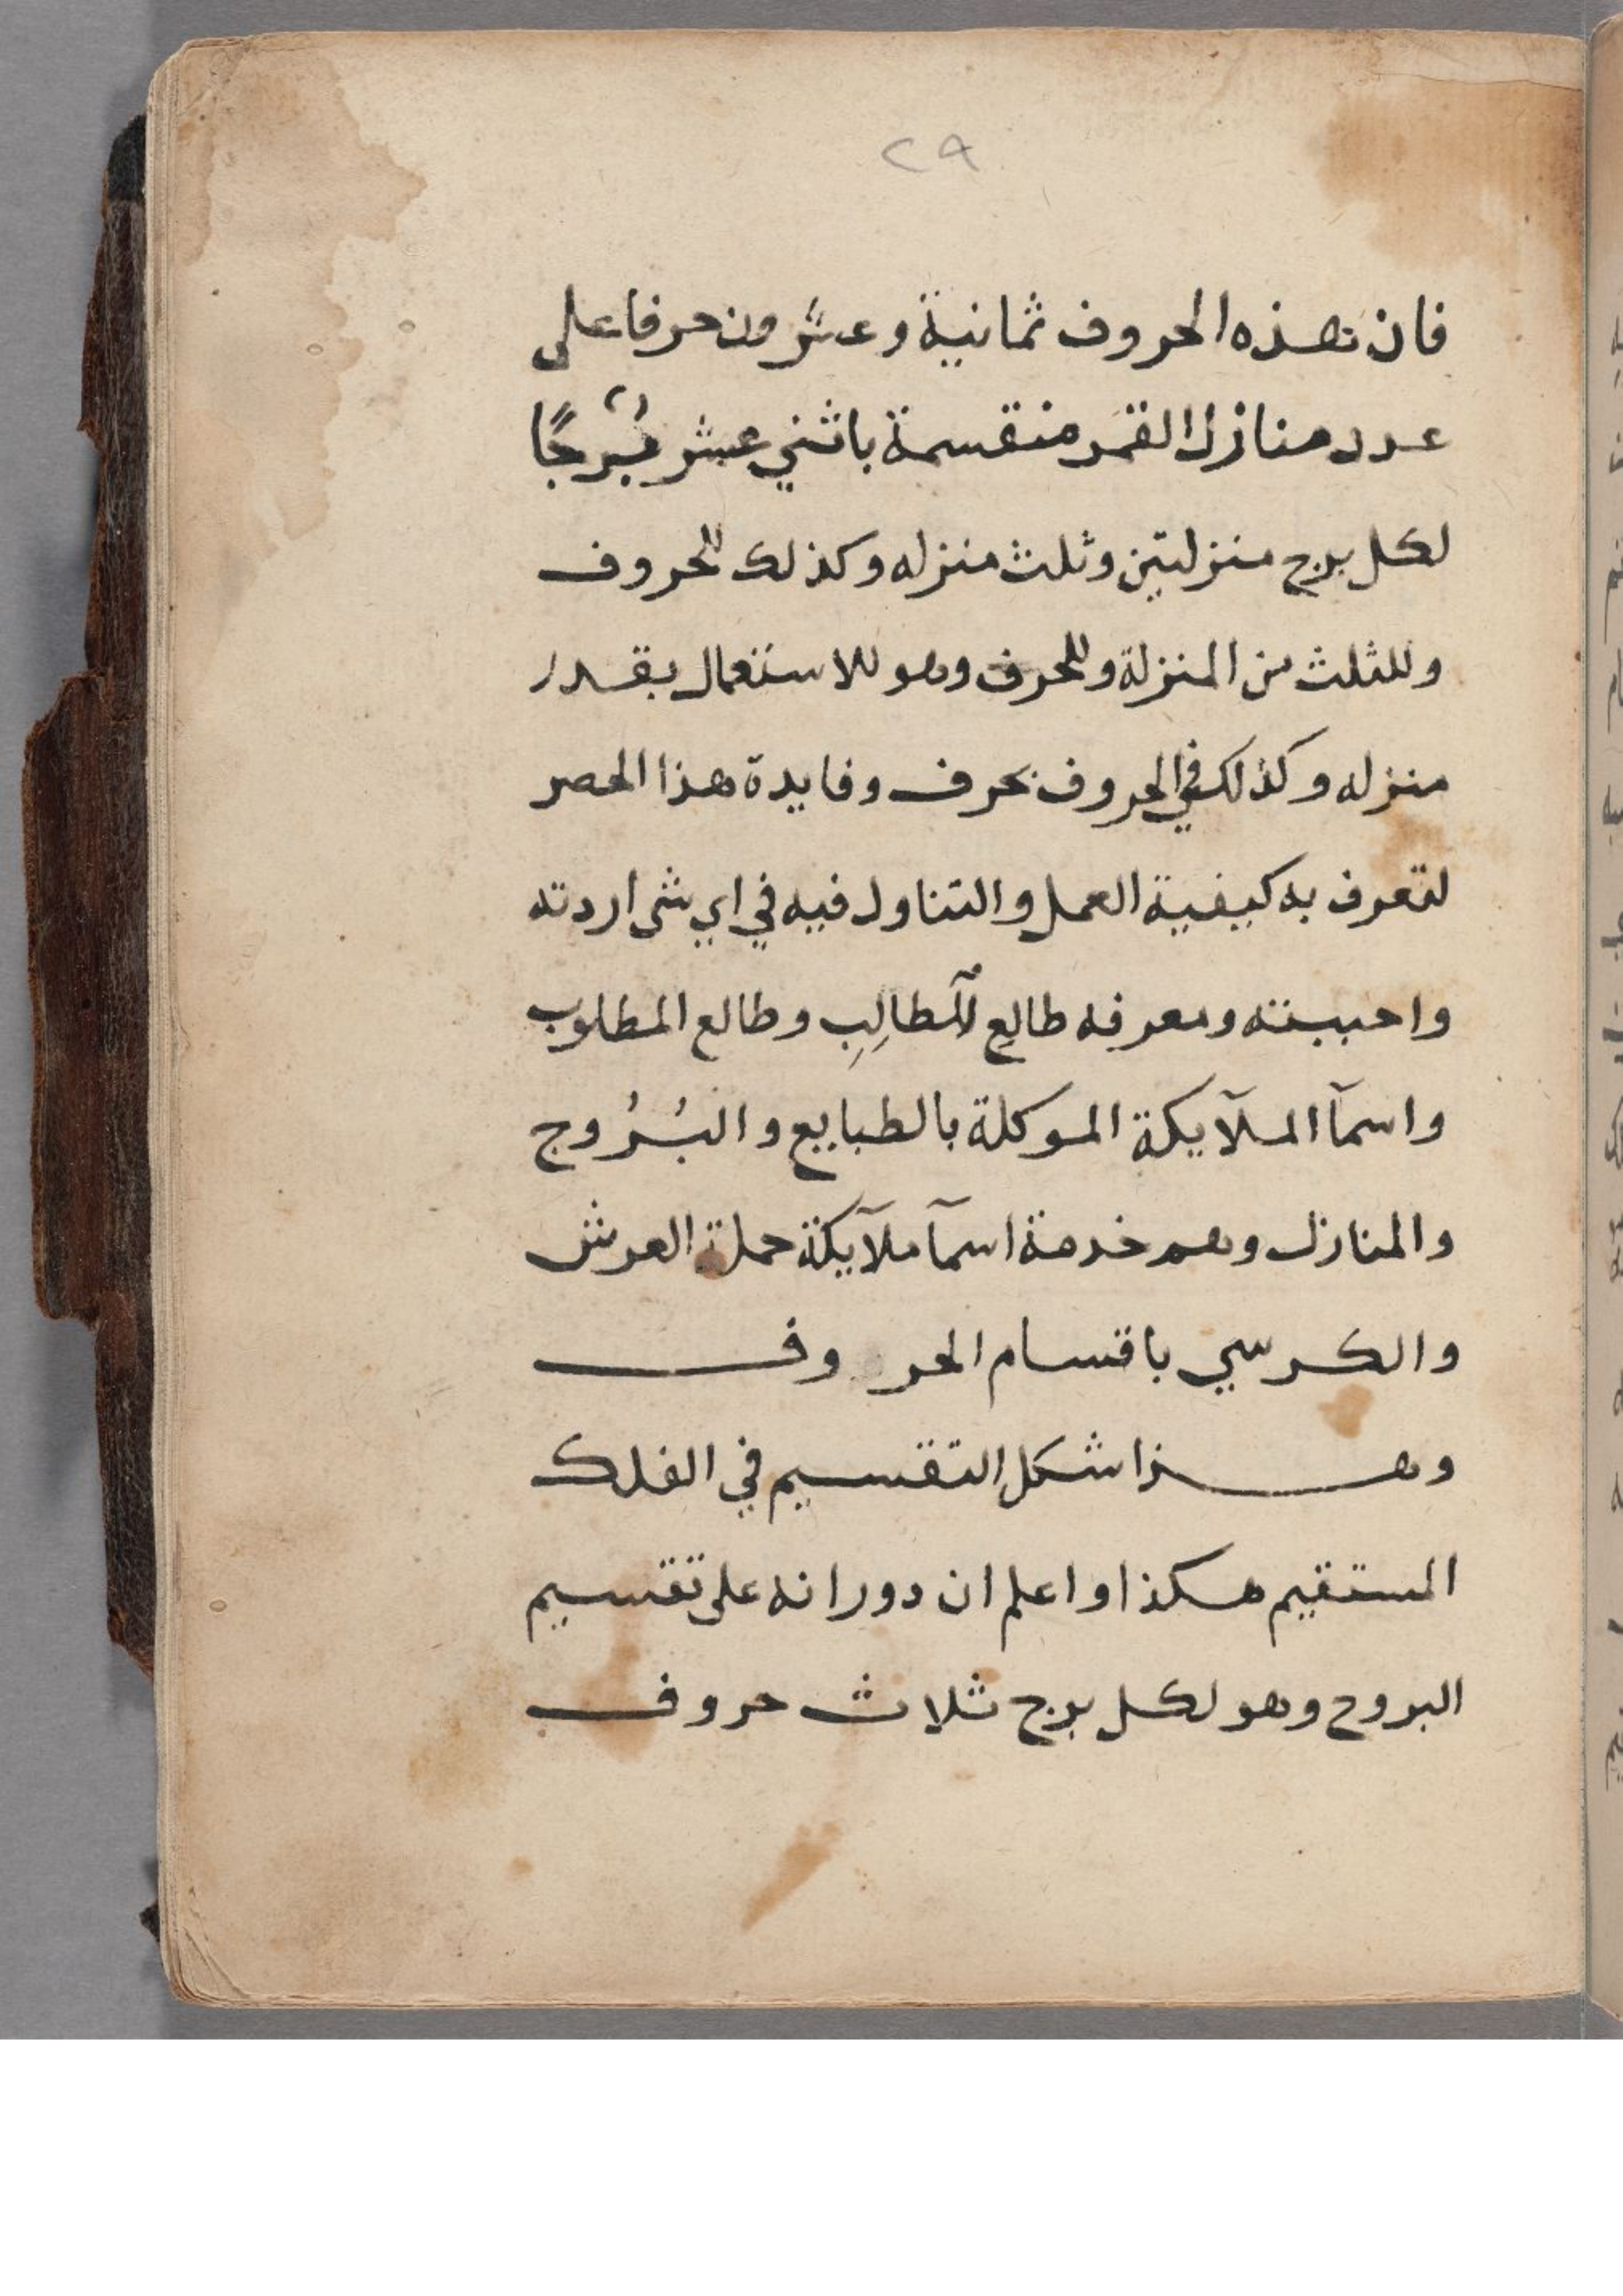 ٢٩
فان هذه الحروف ثمانية وعشرون حرفا على
عدد منازل القمر منقسمة باثني عشر بُرجًا
لكل برج منزلتين وثلث منزله وكذلك للحروف
وللثلث من المنزلة وللحرف وهو للاستعمال بقدر
منزله وكذلك في الحروف بحرف وفايدة هذا الحصر
لتعرف به كيفية العمل والتناول فيه في اي شى اردته
واحببته ومعرفه طالع الطالِبِ وطالع المطلوب
واسمآ الملآيكة الموكلة بالطبايع والبُرُوج
والمنازل وهم خدمة اسمآ ملآيكة حملة العرش
والكرسي باقسام الحروف
وهذا شكل التقسيم في الفلك
المستقيم هكذا واعلم ان دورانه على تقسيم
البروج وهو لكل برج ثلاث حروف